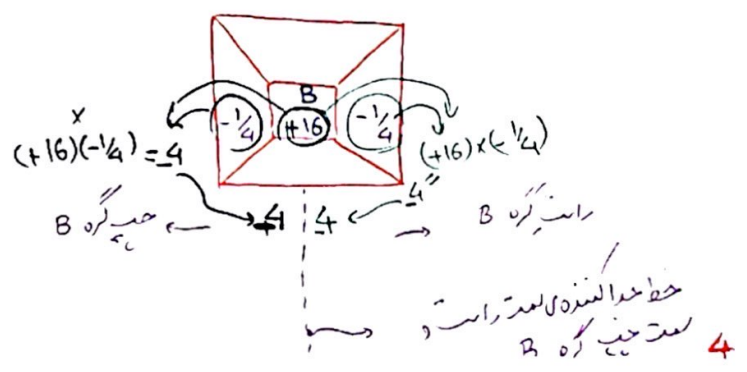 B
-1/4 +16 -1/4
×
(+16)(-1/4) = -4
(+16)×(-1/4)
= -4
چپ گره B ← -4 -4 → راست گره B
خط جداکننده‌ی سمت راست و
سمت چپ گره B
4